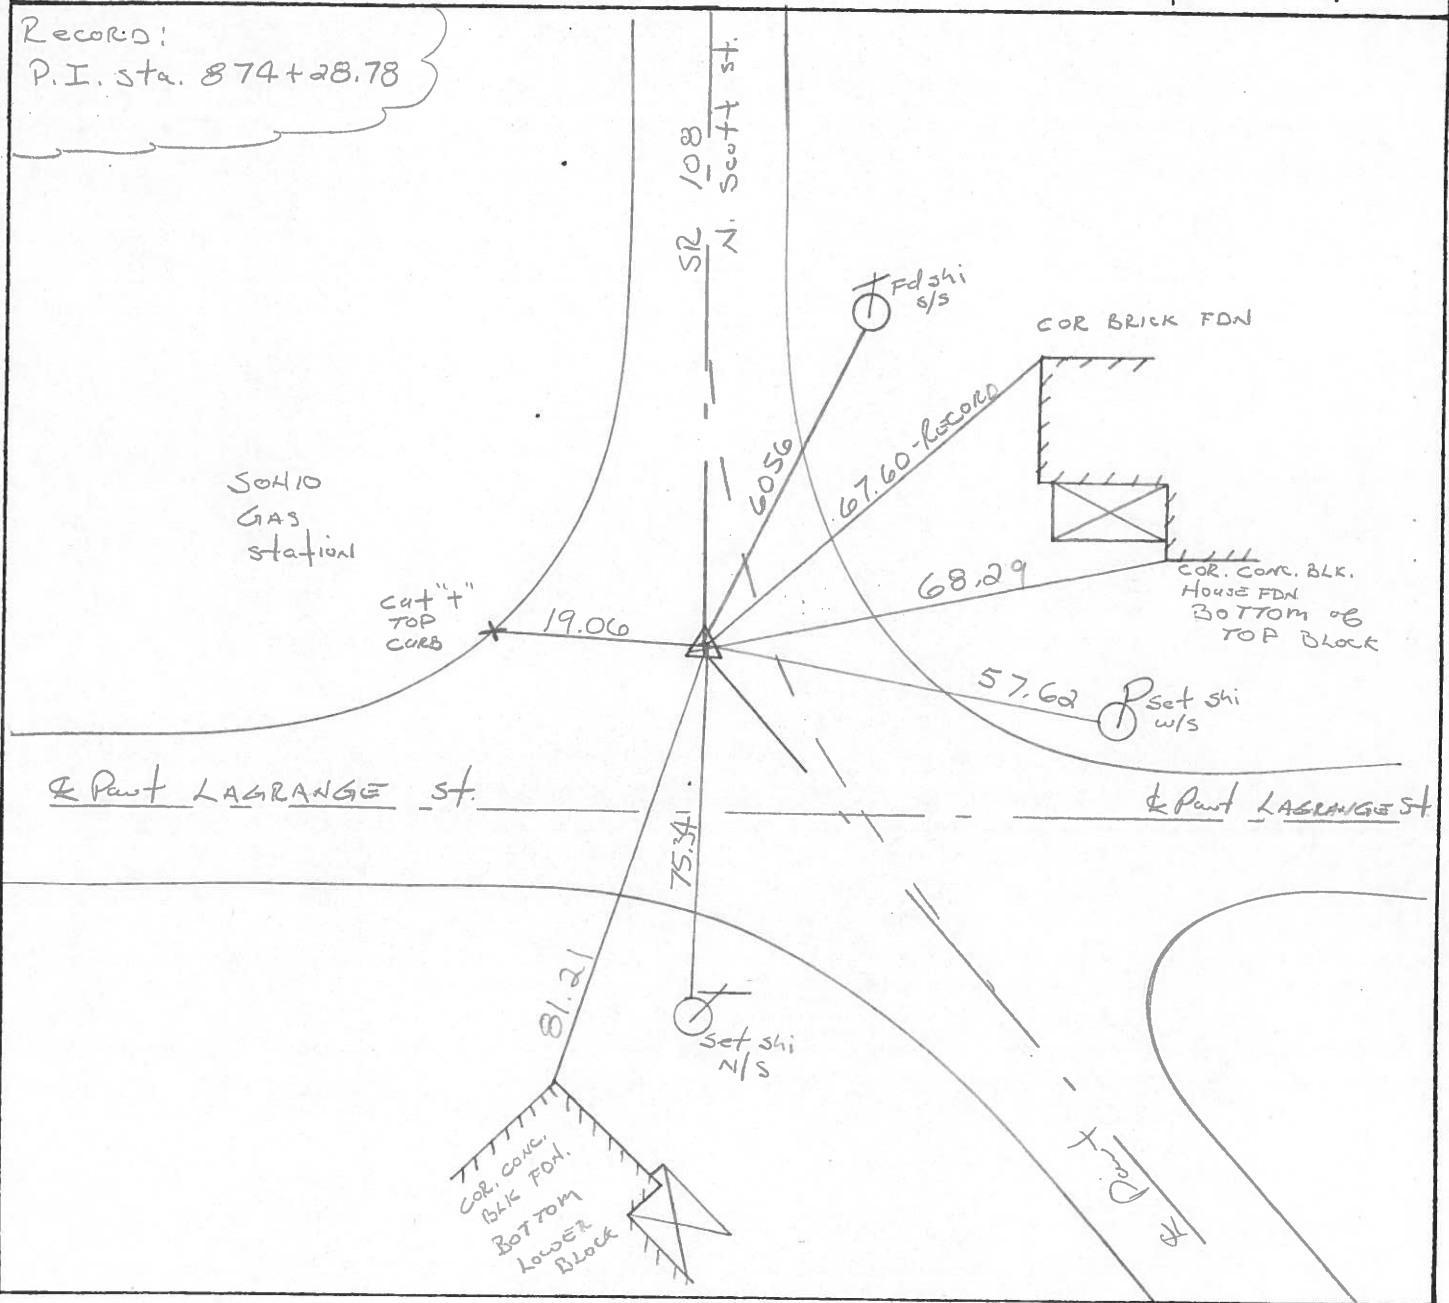 Record:
P.I. sta. 874+28.78
SR 108
N. Scott st.
Fd shi
s/s
COR BRICK FDN
6056
67.60-RECORD
SOHIO
GAS
station
cut "+"
TOP
CURB
19.06
68.29
COR. CONC. BLK.
HOUSE FDN
BOTTOM of
TOP BLOCK
57.62
P
set shi
w/s
℄ Pavt LAGRANGE st.
℄ Pavt LAGRANGE st
75.34
81.21
set shi
N/S
COR. CONC.
BLK FDN.
BOTTOM
LOWER
BLOCK
℄ Pavt